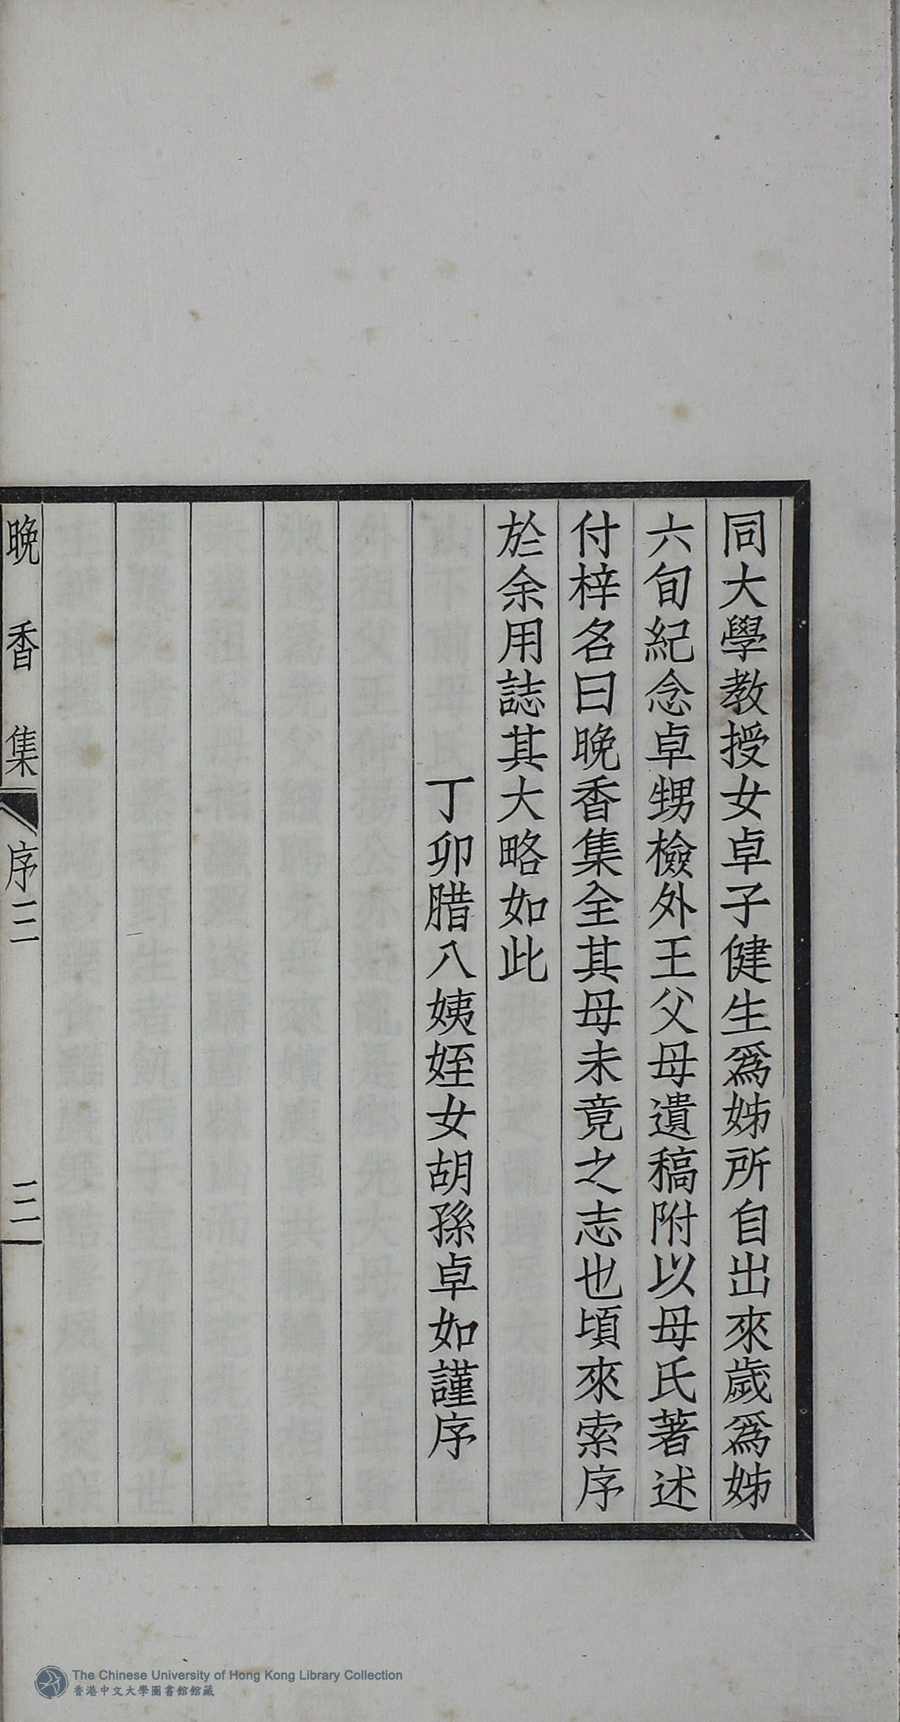 同大學教授女卓子健生爲姊所自出來歲爲姊
六旬紀念卓甥檢外王父母遺稿附以母氏著述
付梓名曰晚香集全其母未竟之志也頃來索序
於余用誌其大略如此
丁卯腊八姨姪女胡孫卓如謹序
晚香集 序三 三
The Chinese University of Hong Kong Library Collection
香港中文大學圖書館館藏